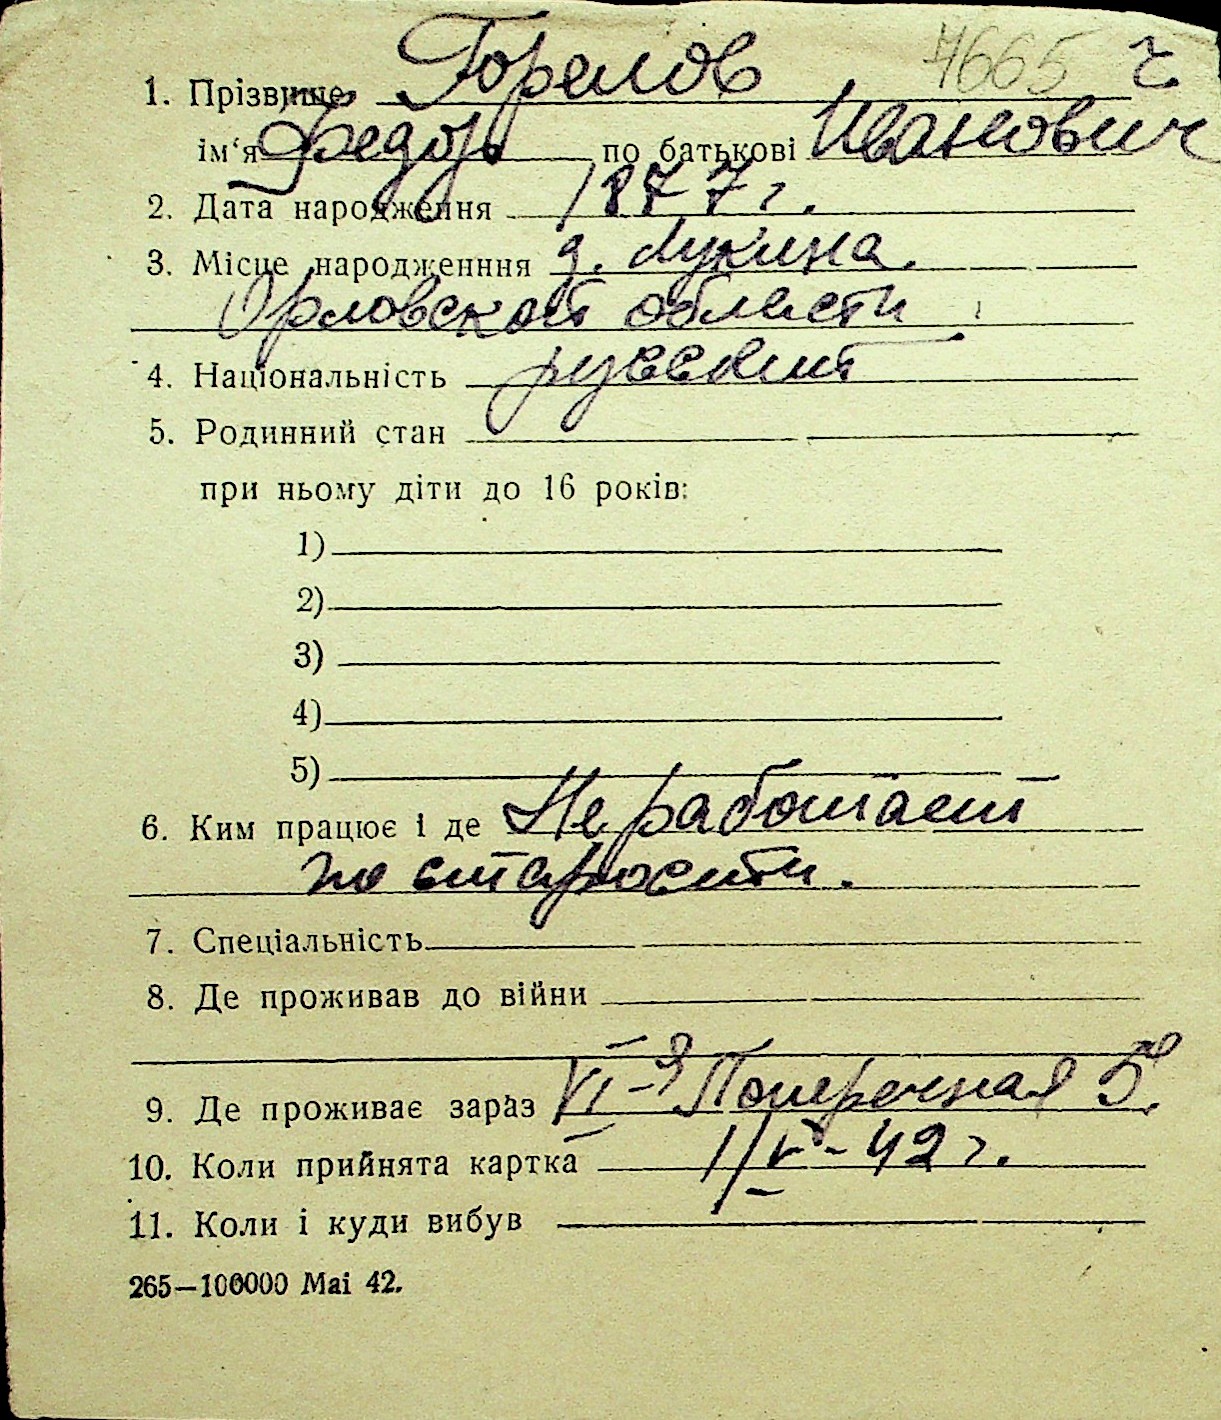 7665 г
1. Прізвище Горелов
ім‘я Федор по батькові Иванович
2. Дата народження 1877 г.
3. Місце народженння д. Лукина
Орловской области
4. Національність русский
5. Родинний стан
при ньому діти до 16 років:
1)
2)
3)
4)
5)
6. Ким працює і де Не работает
по старости.
7. Спеціальність
8. Де проживав до війни
9. Де проживає зараз VI-я Поперечная 5
10. Коли прийнята картка 1/V-42 г.
11. Коли і куди вибув
265—100000 Mai 42.